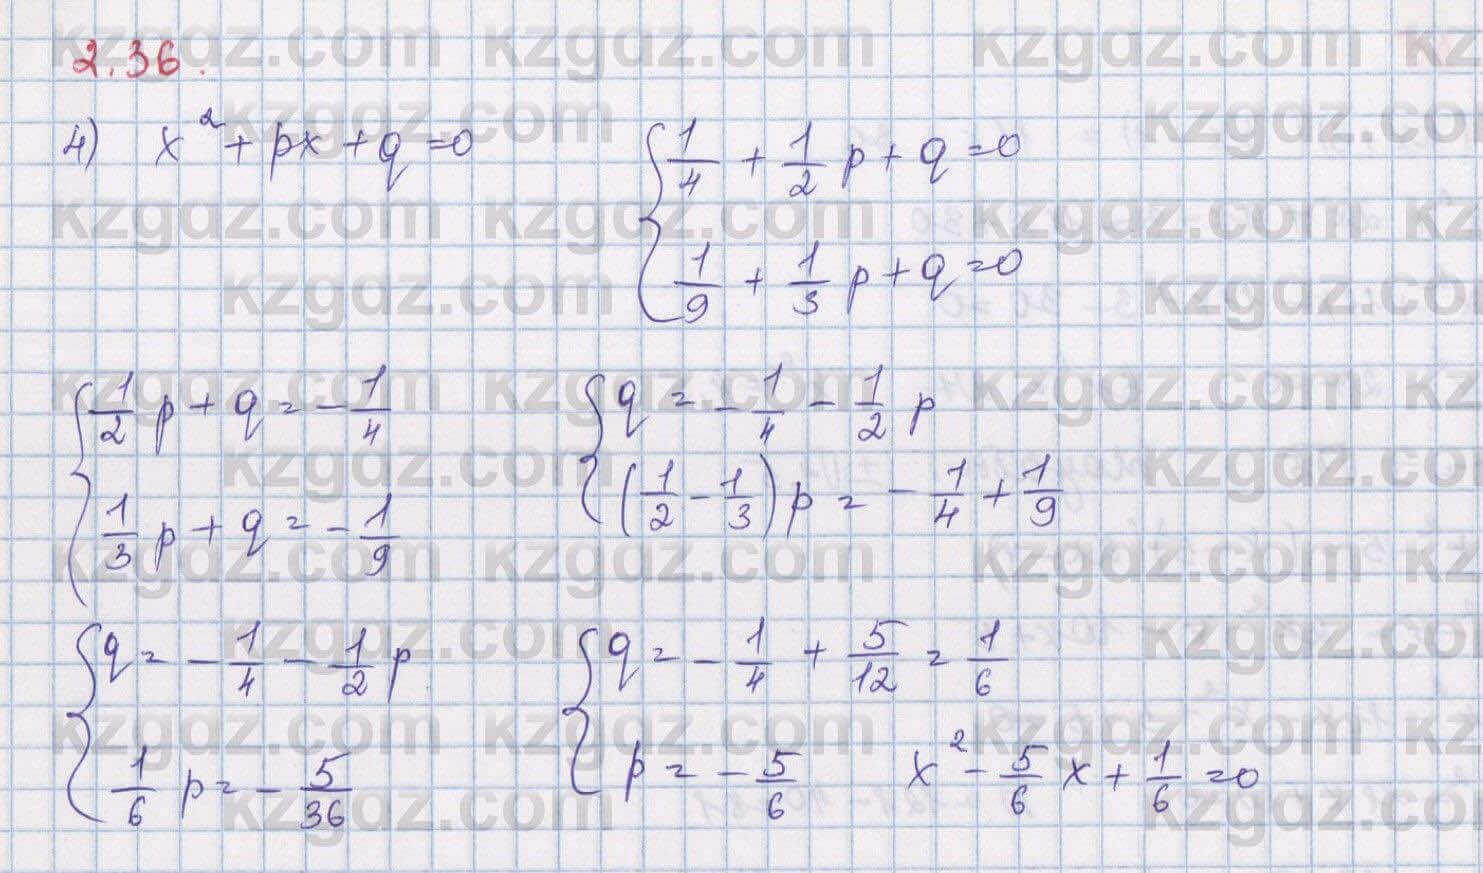 2.36.
4) x² + px + q = 0
{ 1/4 + 1/2 p + q = 0
{ 1/9 + 1/3 p + q = 0
{ 1/2 p + q = - 1/4
{ 1/3 p + q = - 1/9
{ q = - 1/4 - 1/2 p
{ (1/2 - 1/3) p = - 1/4 + 1/9
{ q = - 1/4 - 1/2 p
{ 1/6 p = - 5/36
{ q = - 1/4 + 5/12 = 1/6
{ p = - 5/6
x² - 5/6 x + 1/6 = 0
kzgdz.com